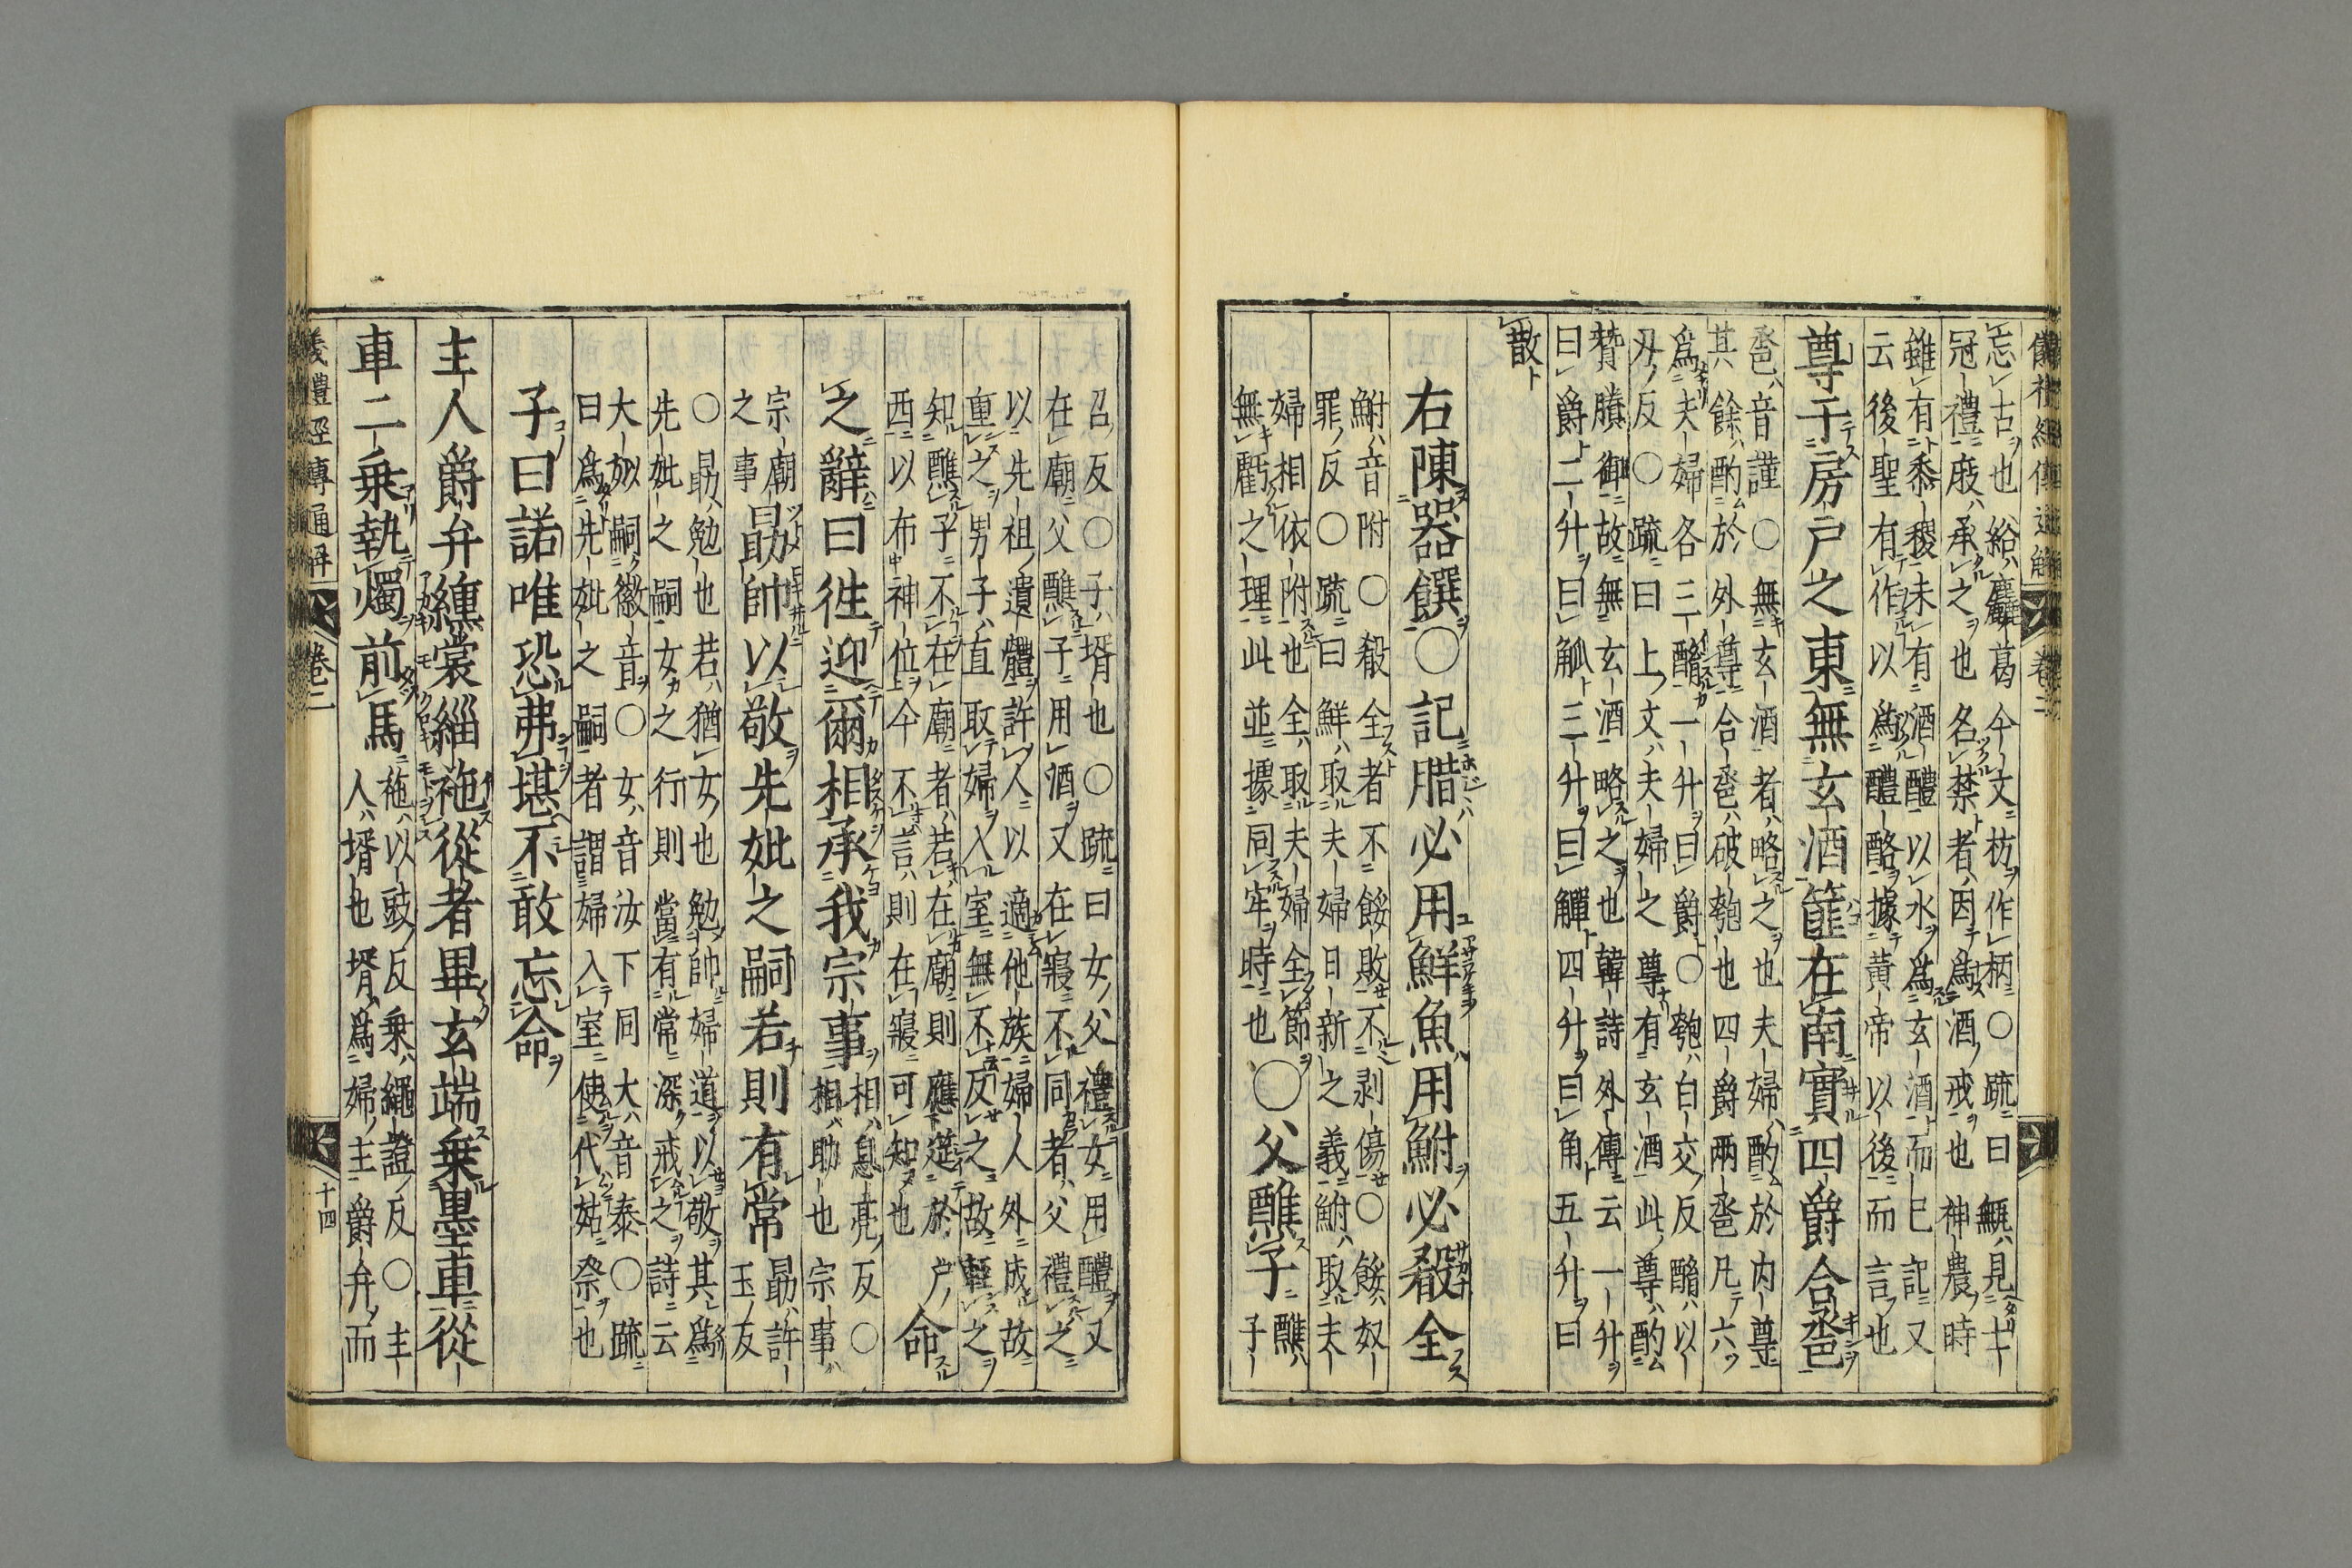 儀禮經傳通解 卷二
忘古也綌麤葛今文枋作柄○疏曰甒見士
冠禮庪承之也名禁者因爲酒戒也神農時
雖有黍稷未有酒醴以水爲玄酒而已記又
云後聖有作以爲醴酪據黃帝以後而言也
尊于房戶之東無玄酒篚在南實四爵合巹
巹音謹○無玄酒者略之也夫婦酌於內尊
其餘酌於外尊合巹破匏也四爵兩巹凡六
爲夫婦各三酳一升曰爵○匏白交反酳以
刃反○疏曰上文夫婦之尊有玄酒此尊酌
贊媵御故無玄酒略之也韓詩外傳云一升
曰爵二升曰觚三升曰觶四升曰角五升曰
散
右陳器饌○記腊必用鮮魚用鮒必殽全
鮒音附○殽全者不餒敗不剥傷○餒奴
罪反○疏曰鮮取夫婦日新之義鮒取夫
婦相依附也全取夫婦全節
無虧之理此並據同牢時也○父醮子醮
子
召反○子壻也○疏曰女父禮女用醴又
在廟父醮子用酒又在寢不同者父禮之
以先祖遺體許人以適他族婦人外成故
重之男子直取婦入室無不反之故輕之
知醮子不在廟者若在廟則應筵於户命
西以布神位今不言則在寢可知也
之辭曰徃迎爾相承我宗事相息亮反○
相助也宗事
宗廟
之事勗帥以敬先妣之嗣若則有常勗許
玉反
○勗勉也若猶女也勉帥婦道以敬其爲
先妣之嗣女之行則當有常深戒之詩云
大姒嗣徽音○女音汝下同大音泰○疏
曰爲先妣之嗣者謂婦入室使代姑祭也
子曰諾唯恐弗堪不敢忘命
主人爵弁纁裳緇袘從者畢玄端乗墨車從
車二乗執燭前馬袘以豉反乗繩證反○主
人壻也壻爲婦主爵弁而
儀禮經傳通解 卷二 十四